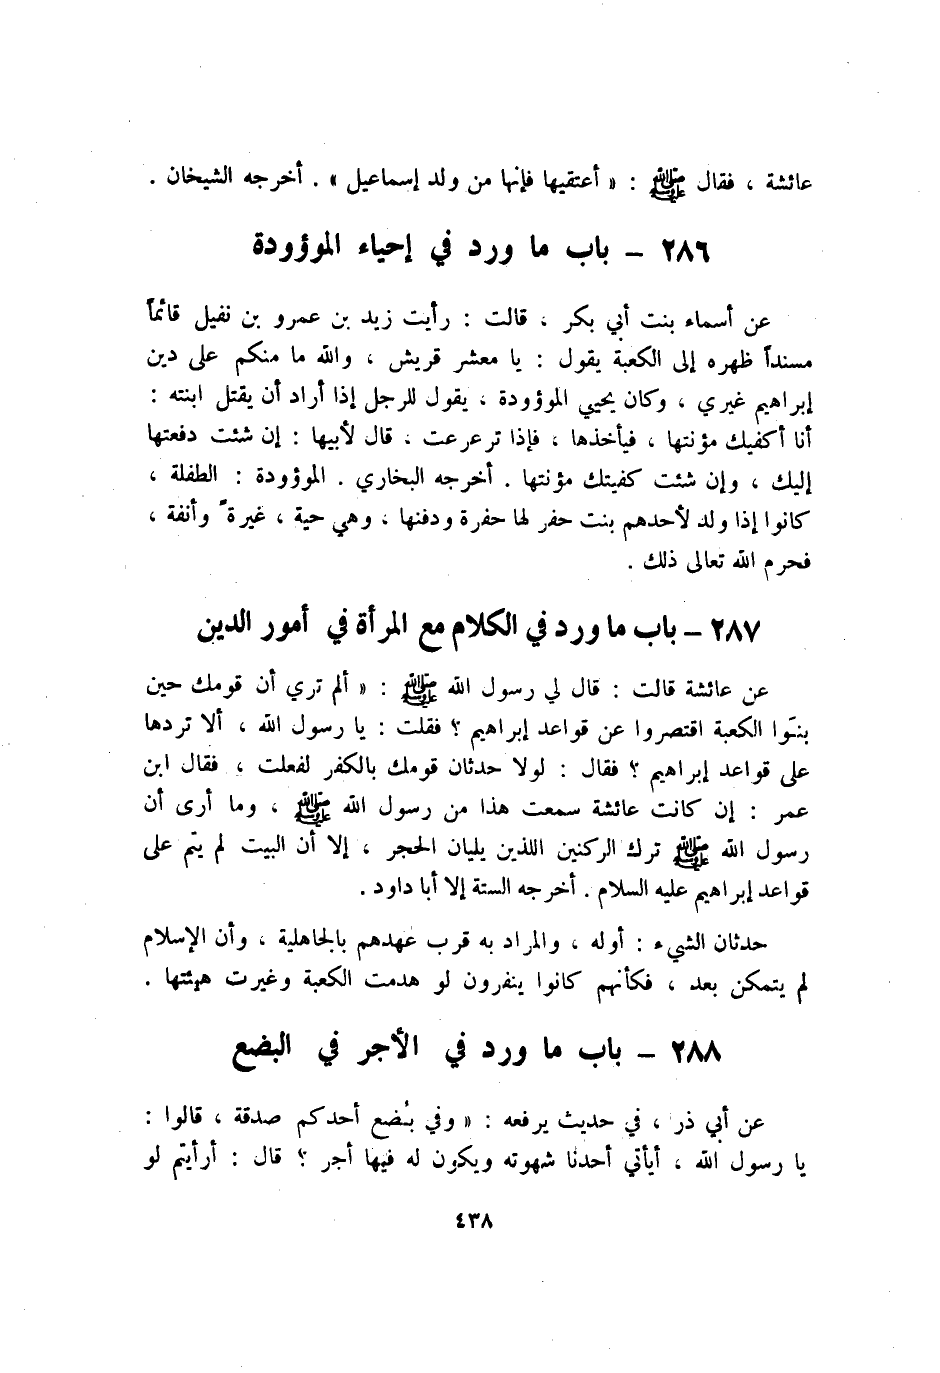 عائشة ، فقال ﷺ : « أعتقيها فإنها من ولد إسماعيل » . أخرجه الشيخان .
٢٨٦ – باب ما ورد في إحياء الموؤودة
عن أسماء بنت أبي بكر ، قالت : رأيت زيد بن عمرو بن نفيل قائماً
مسنداً ظهره إلى الكعبة يقول : يا معشر قريش ، والله ما منكم على دين
إبراهيم غيري ، وكان يحيي الموؤودة ، يقول للرجل إذا أراد أن يقتل ابنته :
أنا أكفيك مؤنتها ، فيأخذها ، فإذا ترعرعت ، قال لأبيها : إن شئت دفعتها
إليك ، وإن شئت كفيتك مؤنتها . أخرجه البخاري . الموؤودة : الطفلة ،
كانوا إذا ولد لأحدهم بنت حفر لها حفرة ودفنها ، وهي حية ، غيرة ً وأنفة ،
فحرم الله تعالى ذلك .
٢٨٧ – باب ما ورد في الكلام مع المرأة في أمور الدين
عن عائشة قالت : قال لي رسول الله ﷺ : « ألم تري أن قومك حين
بنَوا الكعبة اقتصروا عن قواعد إبراهيم ؟ فقلت : يا رسول الله ، ألا تردها
على قواعد إبراهيم ؟ فقال : لولا حدثان قومك بالكفر لفعلت ، فقال ابن
عمر : إن كانت عائشة سمعت هذا من رسول الله ﷺ ، وما أرى أن
رسول الله ﷺ ترك الركنين اللذين يليان الحجر ، إلا أن البيت لم يتم على
قواعد إبراهيم عليه السلام . أخرجه الستة إلا أبا داود .
حدثان الشيء : أوله ، والمراد به قرب عهدهم بالجاهلية ، وأن الإسلام
لم يتمكن بعد ، فكأنهم كانوا ينفرون لو هدمت الكعبة وغيرت هيئتها .
٢٨٨ – باب ما ورد في الأجر في البضع
عن أبي ذر ، في حديث يرفعه : « وفي بُضع أحدكم صدقة ، قالوا :
يا رسول الله ، أيأتي أحدنا شهوته ويكون له فيها أجر ؟ قال : أرأيتم لو
٤٣٨